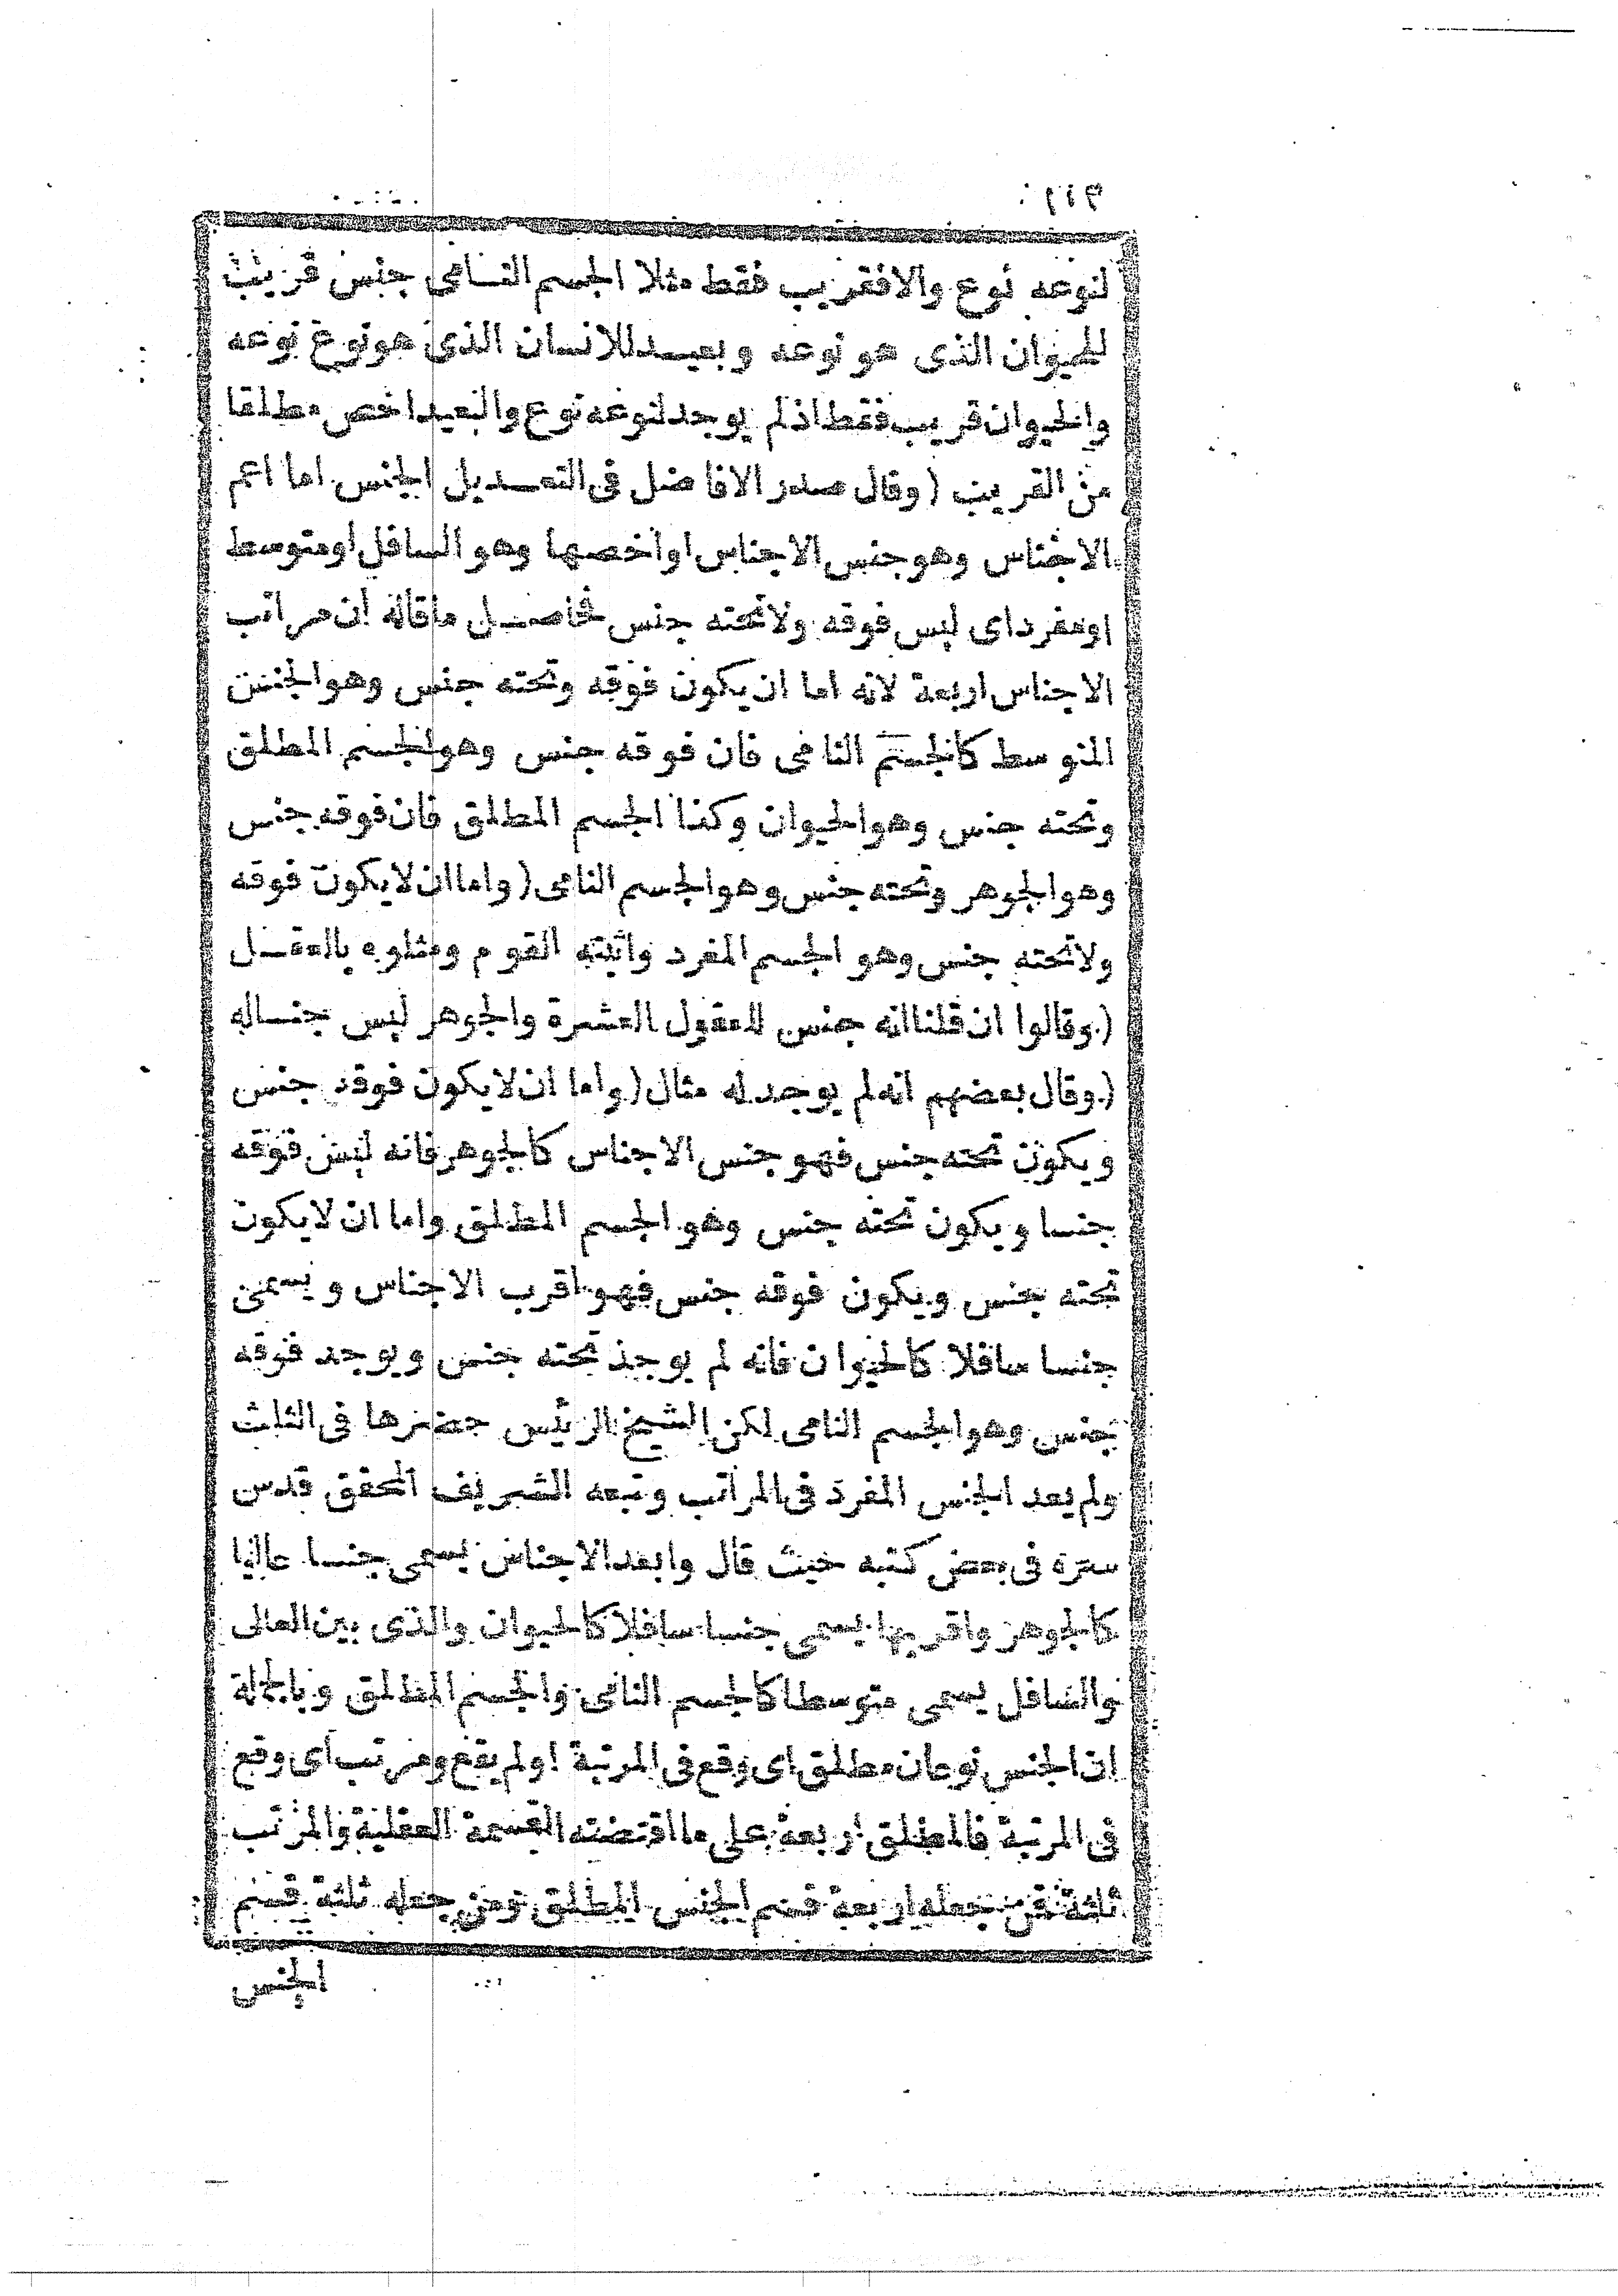 لنوعه نوع والافقريب فقط مثلا الجسم النامى جنس قريب
للحيوان الذى هو نوعه وبعيد للانسان الذى هو نوع نوعه
والحيوان قريب فقط اذلم يوجد لنوعه نوع والبعيد اخص مطلقا
من القريب (وقال صدر الافاضل فى التعديل الجنس اما اعم
الاجناس وهو جنس الاجناس او اخصها وهو السافل او متوسط
او مفرد اى ليس فوقه ولا تحته جنس فحاصل ما قاله ان مراتب
الاجناس اربعة لانه اما ان يكون فوقه وتحته جنس وهو الجنس
المتوسط كالجسم النامى فان فوقه جنس وهو الجسم المطلق
وتحته جنس وهو الحيوان وكذا الجسم المطلق فان فوقه جنس
وهو الجوهر وتحته جنس وهو الجسم النامى (واما ان لا يكون فوقه
ولا تحته جنس وهو الجسم المفرد واثبته القوم ومثلوه بالعقل
(وقالوا ان قلنا انه جنس للعقول العشرة والجوهر ليس جنساله
(وقال بعضهم انه لم يوجد له مثال (واما ان لا يكون فوقه جنس
ويكون تحته جنس فهو جنس الاجناس كالجوهر فانه ليس فوقه
جنسا ويكون تحته جنس وهو الجسم المطلق واما ان لا يكون
تحته جنس ويكون فوقه جنس فهو اقرب الاجناس ويسمى
جنسا سافلا كالحيوان فانه لم يوجد تحته جنس ويوجد فوقه
جنس وهو الجسم النامى لكن الشيخ الرئيس حصرها فى الثلث
ولم يعد الجنس المفرد فى المراتب وتبعه الشريف المحقق قدس
سره فى بعض كتبه حيث قال وابعد الاجناس يسمى جنسا عاليا
كالجوهر واقربها يسمى جنسا سافلا كالحيوان والذى بين العالى
والسافل يسمى متوسطا كالجسم النامى والجسم المطلق وبالجملة
ان الجنس نوعان مطلق اى وقع فى المرتبة اولم يقع ومرتب اى وقع
فى المرتبة فالمطلق اربعة على ما اقتضته القسمة العقلية والمرتب
ثلثة فمن جعله اربعة قسم الجنس المطلق ومن جعله ثلثة قسم
الجنس